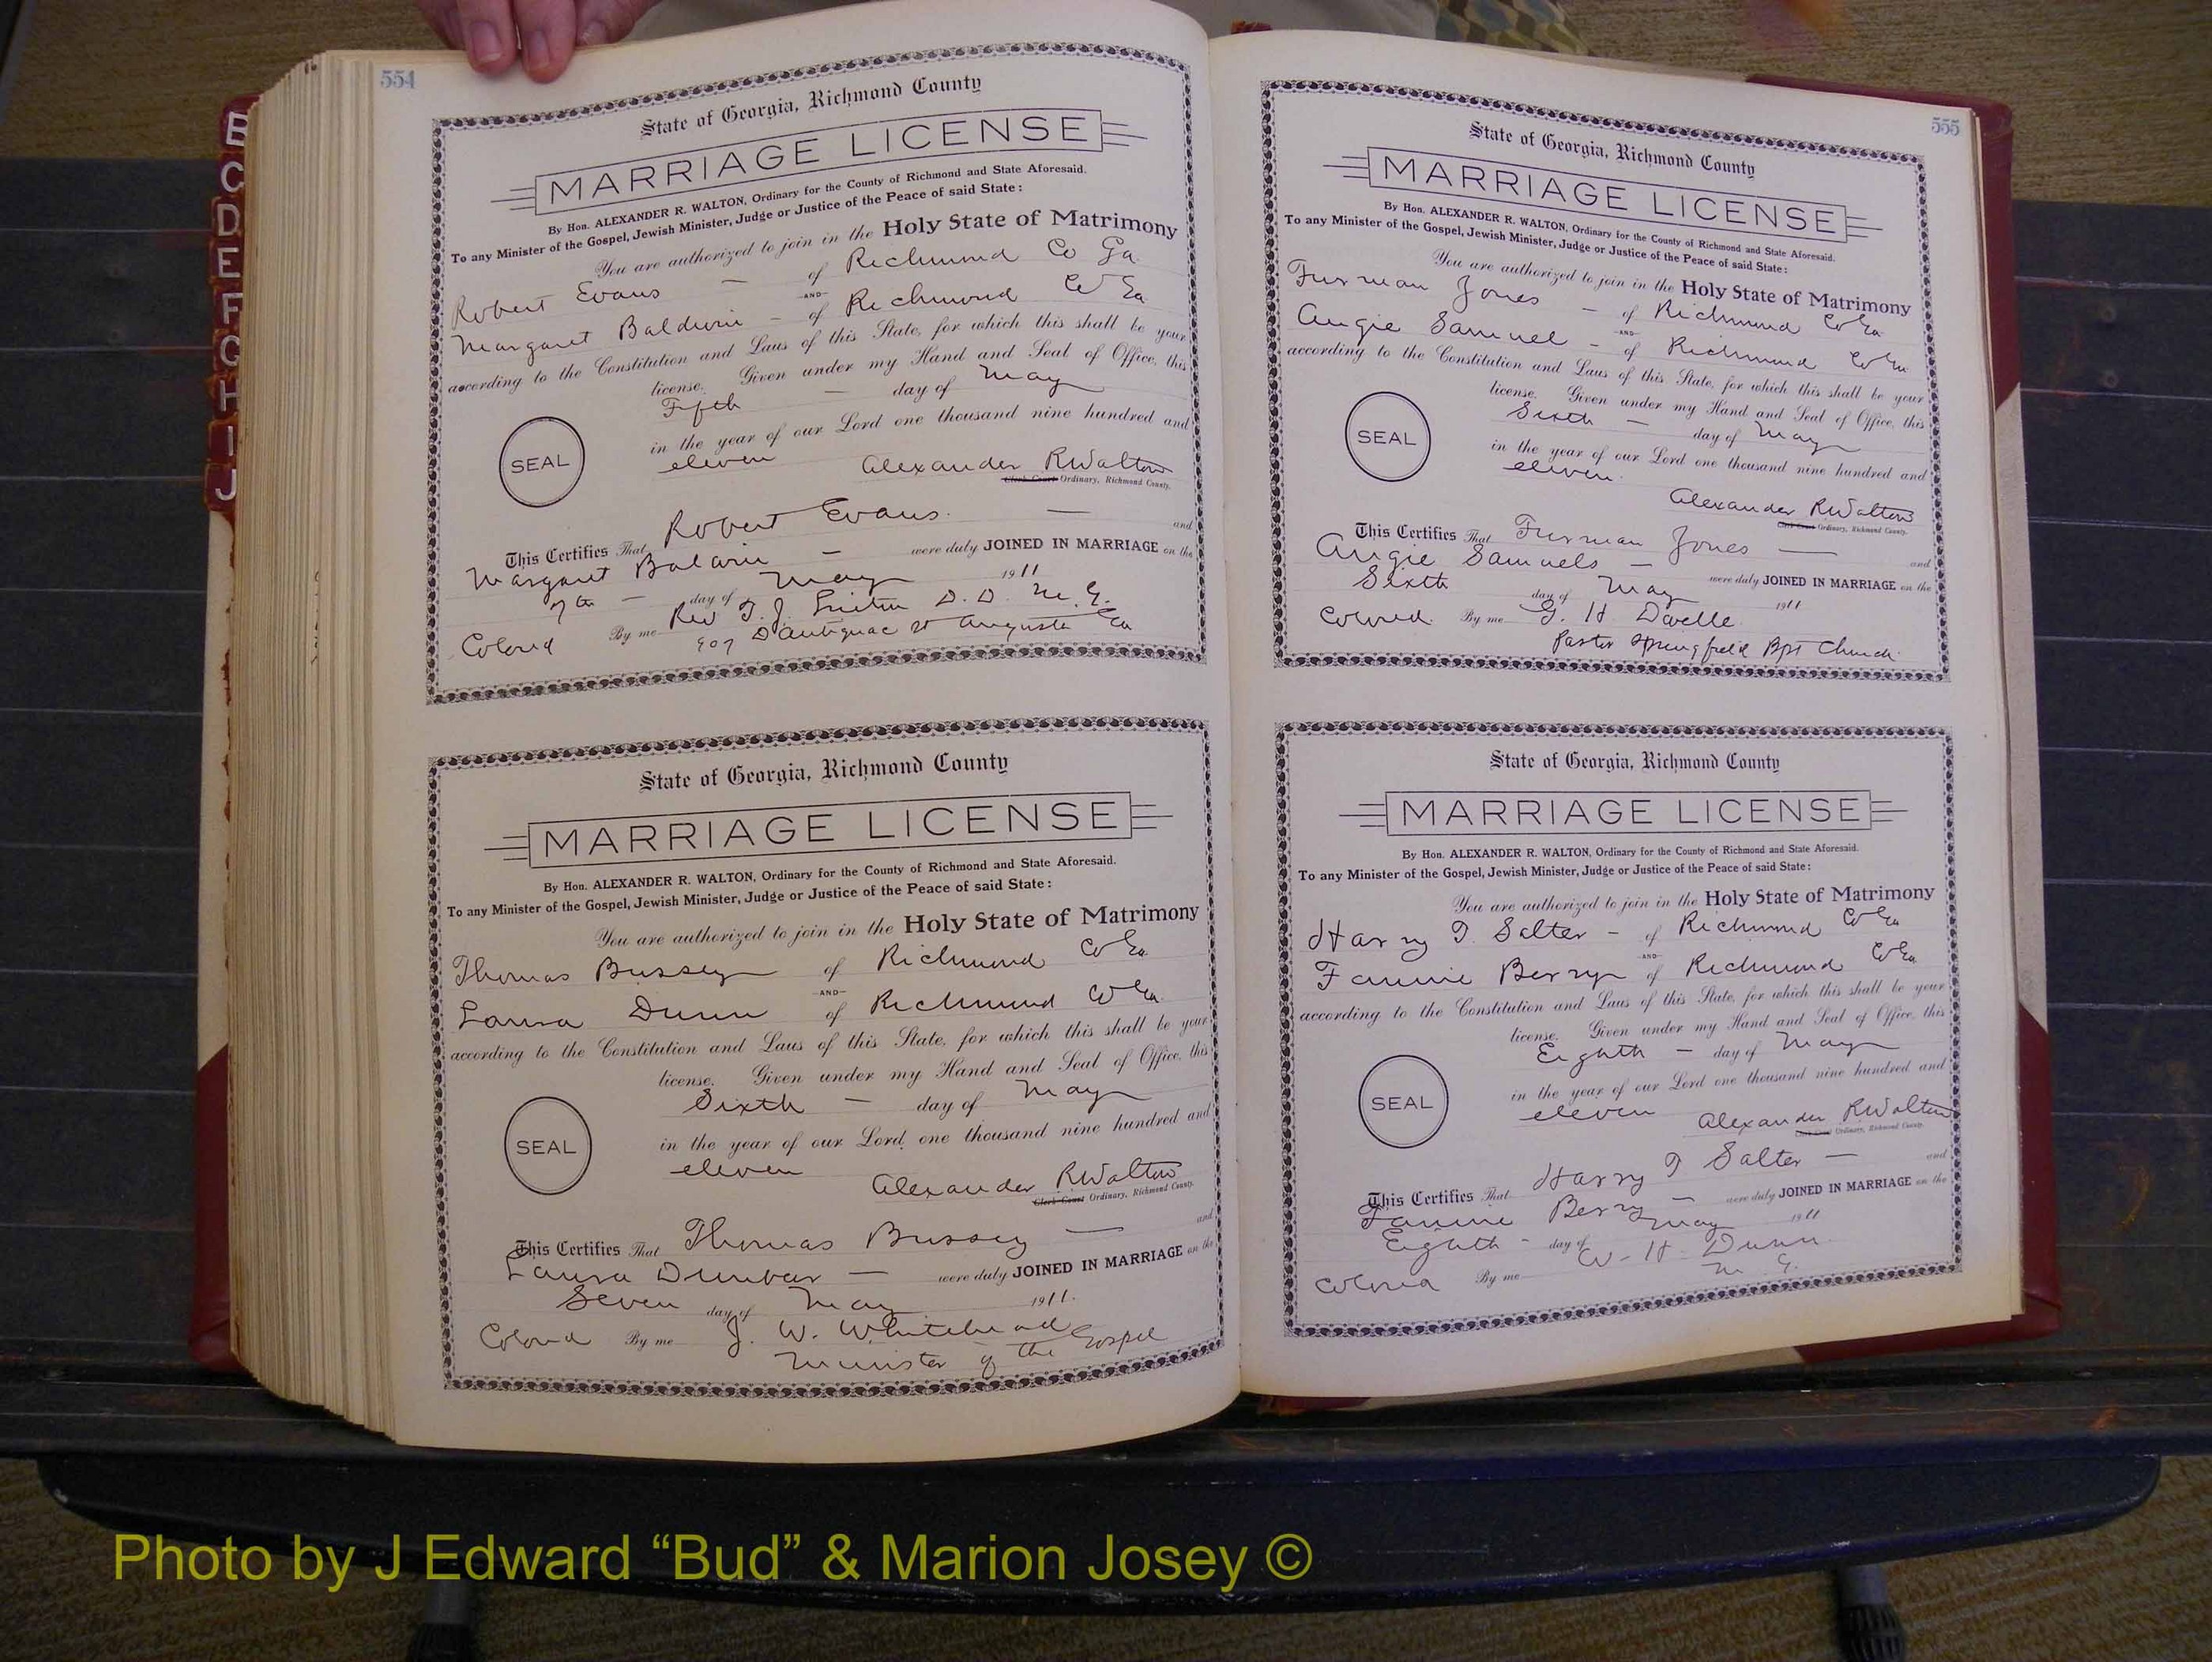 B
C
D
E
F
G
H
I
J
554
State of Georgia, Richmond County
MARRIAGE LICENSE
By Hon. ALEXANDER R. WALTON, Ordinary for the County of Richmond and State Aforesaid.
To any Minister of the Gospel, Jewish Minister, Judge or Justice of the Peace of said State:
You are authorized to join in the Holy State of Matrimony
Robert Evans — of Richmond Co Ga
—AND—
Margaret Baldwin — of Richmond Co Ga
according to the Constitution and Laws of this State, for which this shall be your
license. Given under my Hand and Seal of Office, this
Fifth — day of May
in the year of our Lord one thousand nine hundred and
eleven
SEAL
Alexander R Walton
Clerk Court Ordinary, Richmond County.
This Certifies That Robert Evans — and
Margaret Balwin — were duly JOINED IN MARRIAGE on the
7th — day of May 1911
Colored By me Rev T. J. D. D. M. G.
907 D'Antignac St Augusta Ga
State of Georgia, Richmond County
MARRIAGE LICENSE
By Hon. ALEXANDER R. WALTON, Ordinary for the County of Richmond and State Aforesaid.
To any Minister of the Gospel, Jewish Minister, Judge or Justice of the Peace of said State:
You are authorized to join in the Holy State of Matrimony
Thomas Bussey of Richmond Co Ga
—AND—
Laura Dunn of Richmond Co Ga
according to the Constitution and Laws of this State, for which this shall be your
license. Given under my Hand and Seal of Office, this
Sixth — day of May
in the year of our Lord one thousand nine hundred and
eleven
SEAL
Alexander R Walton
Clerk Court Ordinary, Richmond County.
This Certifies That Thomas Bussey — and
Laura Dunbar — were duly JOINED IN MARRIAGE on the
Seven day of May 1911.
Colored By me J. W. Whitehead
Minister of the Gospel
555
State of Georgia, Richmond County
MARRIAGE LICENSE
By Hon. ALEXANDER R. WALTON, Ordinary for the County of Richmond and State Aforesaid.
To any Minister of the Gospel, Jewish Minister, Judge or Justice of the Peace of said State:
You are authorized to join in the Holy State of Matrimony
Furman Jones — of Richmond Co Ga
—AND—
Angie Samuel — of Richmond Co Ga
according to the Constitution and Laws of this State, for which this shall be your
license. Given under my Hand and Seal of Office, this
Sixth — day of May
in the year of our Lord one thousand nine hundred and
eleven.
SEAL
Alexander R Walton
Clerk Court Ordinary, Richmond County.
This Certifies That Furman Jones — and
Angie Samuels — were duly JOINED IN MARRIAGE on the
Sixth day of May 1911
Colored. By me G. H. Dwelle
Pastor Springfield Bpt Church.
State of Georgia, Richmond County
MARRIAGE LICENSE
By Hon. ALEXANDER R. WALTON, Ordinary for the County of Richmond and State Aforesaid.
To any Minister of the Gospel, Jewish Minister, Judge or Justice of the Peace of said State:
You are authorized to join in the Holy State of Matrimony
Harry T. Salter — of Richmond Co Ga
—AND—
Fannie Berry of Richmond Co Ga
according to the Constitution and Laws of this State, for which this shall be your
license. Given under my Hand and Seal of Office, this
Eighth — day of May
in the year of our Lord one thousand nine hundred and
eleven
SEAL
Alexander R Walton
Clerk Court Ordinary, Richmond County.
This Certifies That Harry T Salter — and
Fannie Berry — were duly JOINED IN MARRIAGE on the
Eighth - day of May 1911
Colored By me W. H. Dunn.
M. G.
Photo by J Edward “Bud” & Marion Josey ©